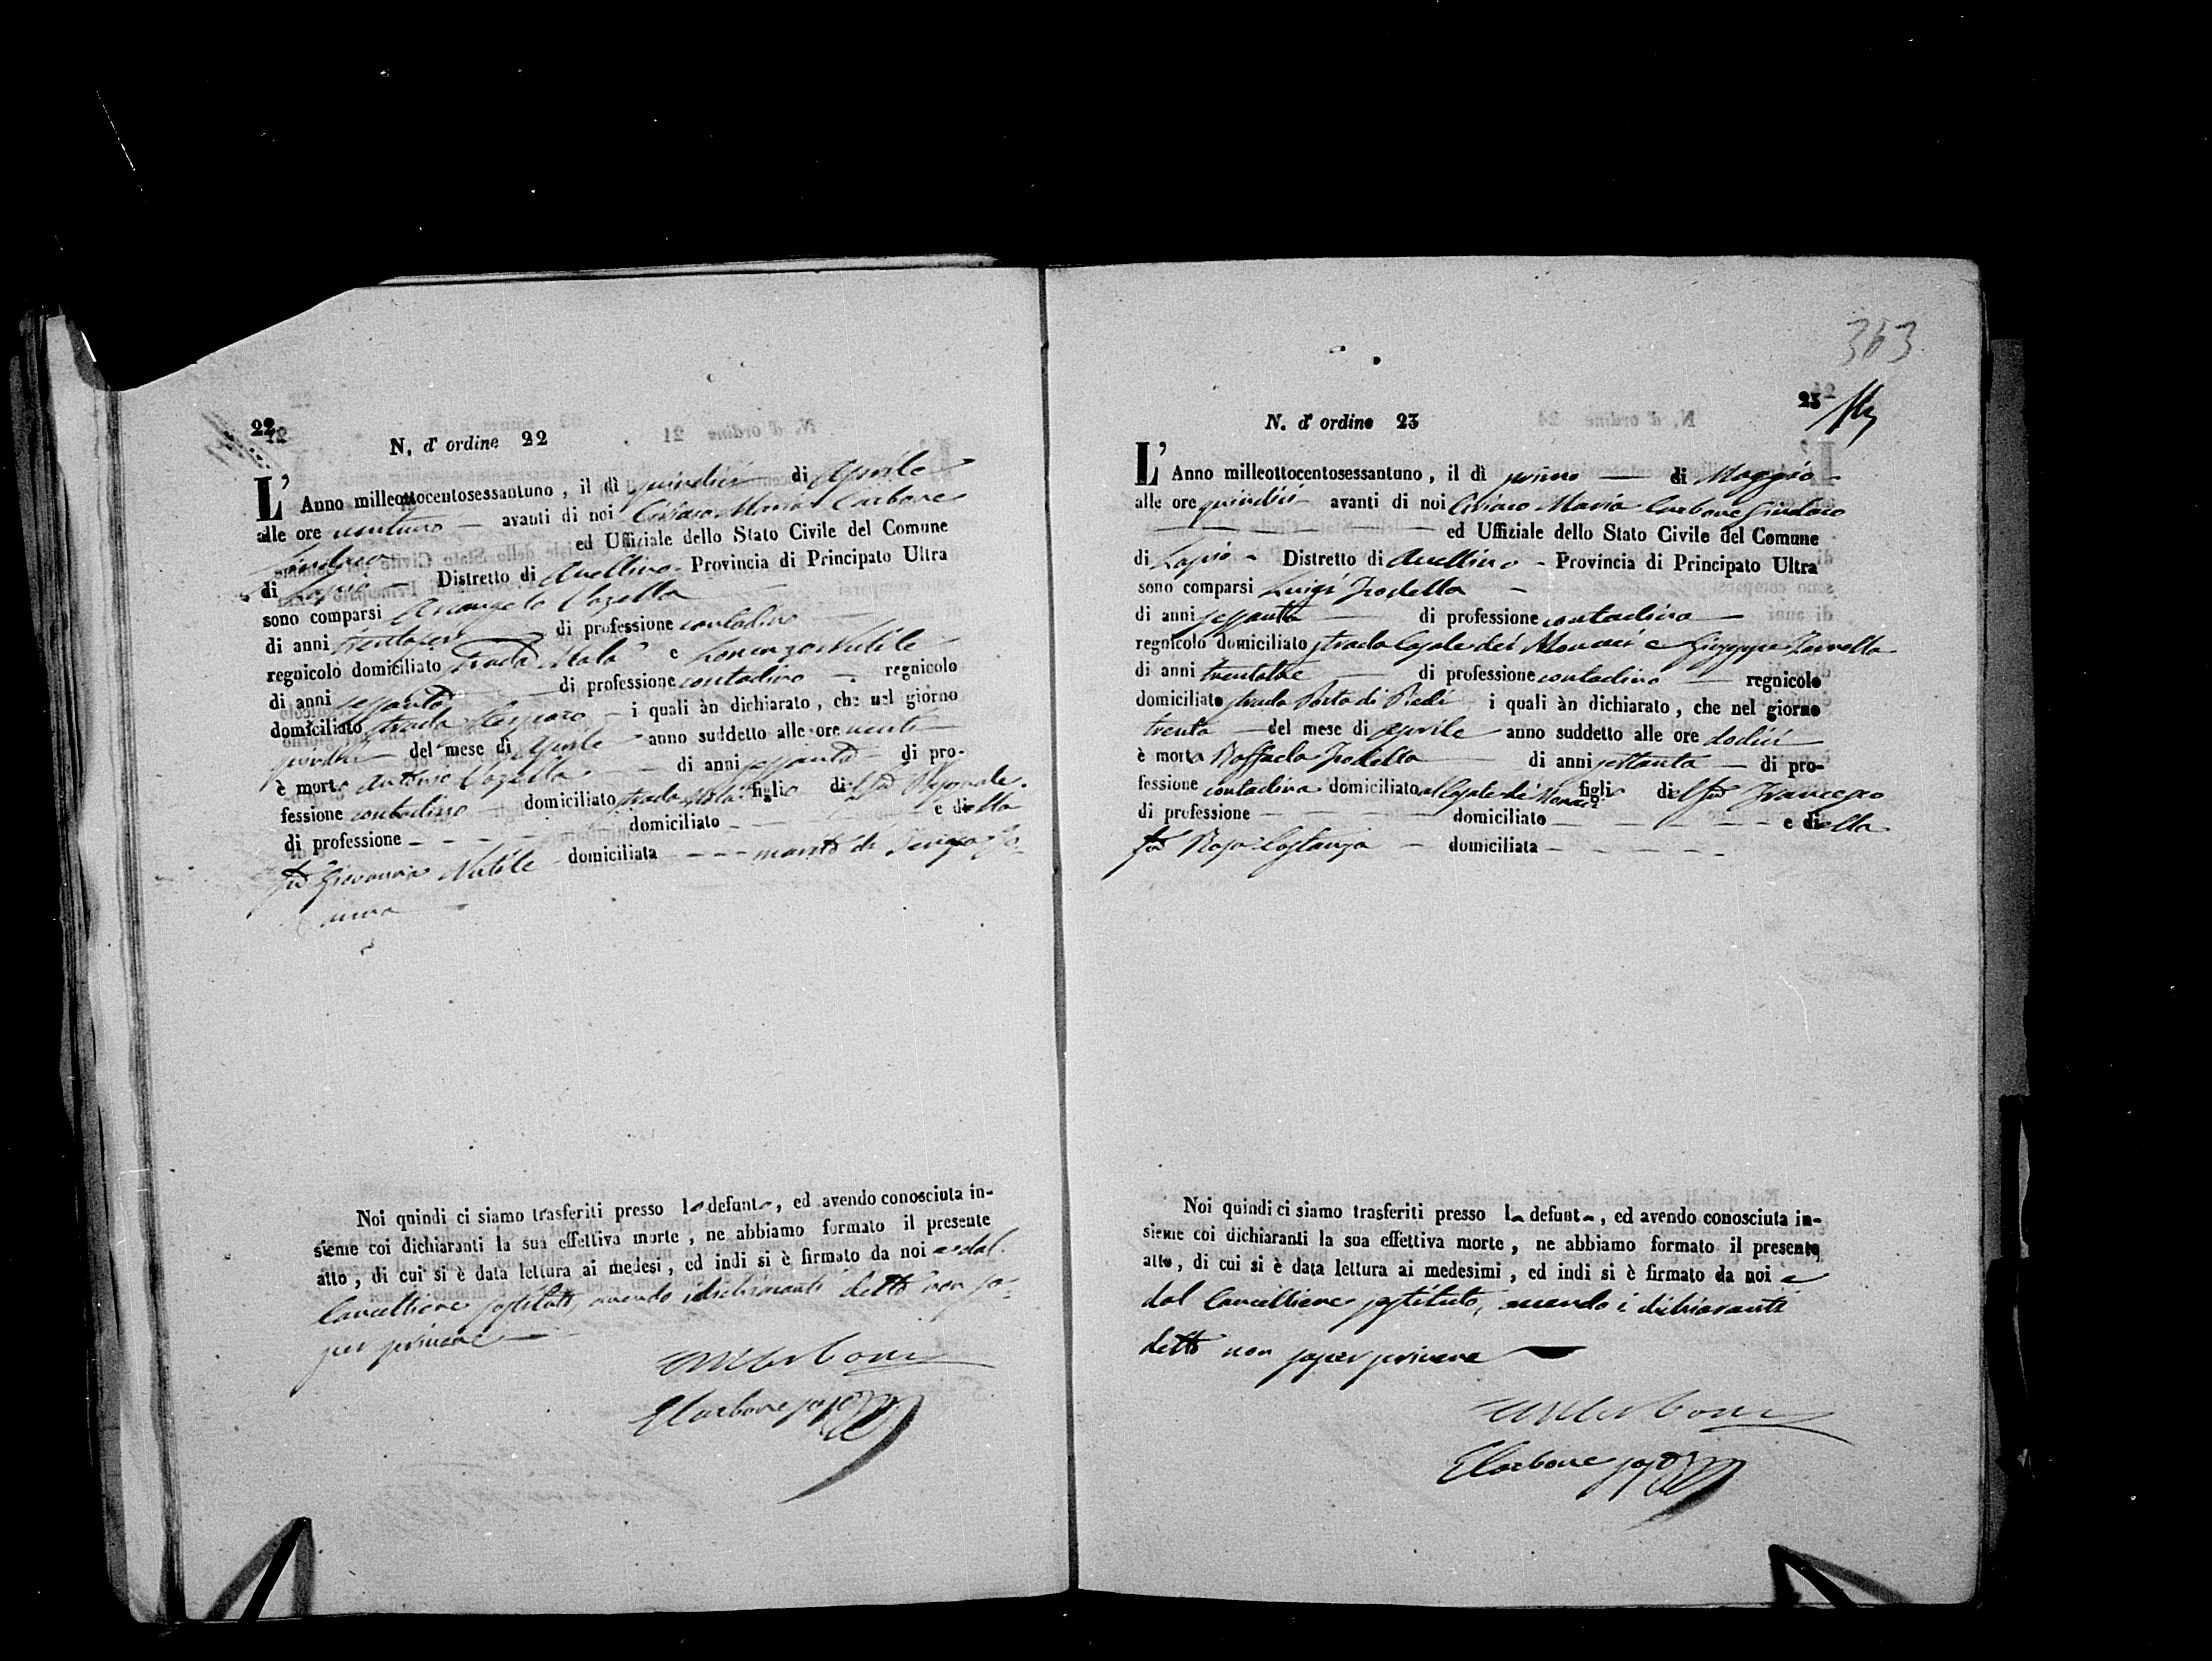 22
N. d' ordine 22
L' Anno milleottocentosessantuno, il dì quindici di Aprile
alle ore ventuno — avanti di noi Ciriaco Maria Carbone
Sindaco ed Uffiziale dello Stato Civile del Comune
di Lapio — Distretto di Avellino - Provincia di Principato Ultra
sono comparsi Arcangelo
di anni trentasei — di professione contadino —
regnicolo domiciliato strada e Lorenzo Nutile
di anni sessanta — di professione contadino — regnicolo
domiciliato strada — i quali àn dichiarato, che nel giorno
quindici — del mese di Aprile anno suddetto alle ore venti —
è morto Antonio — di anni sessanta — di pro-
fessione contadino — domiciliato strada figlio del fu Pasquale
di professione - - - domiciliato - - - e della
fu Giovanna Nutile domiciliata - - - marito di
Noi quindi ci siamo trasferiti presso lo defunto, ed avendo conosciuta in-
sieme coi dichiaranti la sua effettiva morte, ne abbiamo formato il presente
atto, di cui si è data lettura ai medesi, ed indi si è firmato da noi e dal
Cancelliere sostituto, avendo i dichiaranti detto non sa-
per scrivere —
Carbone
363
23
N. d' ordine 23
L' Anno milleottocentosessantuno, il dì primo — di Maggio -
alle ore quindici - avanti di noi Ciriaco Maria Carbone Sindaco
— — — ed Uffiziale dello Stato Civile del Comune
di Lapio - Distretto di Avellino - Provincia di Principato Ultra
sono comparsi Luigi Trodella —
di anni sessanta — di professione contadino —
regnicolo domiciliato strada Casale dei Monaci e Giuseppe
di anni trentatre — di professione contadino — regnicolo
domiciliato strada Porta di Piedi - i quali àn dichiarato, che nel giorno
trenta — del mese di Aprile anno suddetto alle ore dodici —
è morta Raffaela Trodella — di anni settanta — di pro-
fessione contadina domiciliata Casale dei Monaci figlia del fu Francesco
di professione - - - domiciliato - - - e della
fu Rosa Costanza — domiciliata - - -
Noi quindi ci siamo trasferiti presso la defunta, ed avendo conosciuta in-
sieme coi dichiaranti la sua effettiva morte, ne abbiamo formato il presente
atto, di cui si è data lettura ai medesimi, ed indi si è firmato da noi e
dal Cancelliere sostituto, avendo i dichiaranti
detto non saper scrivere —
Carbone